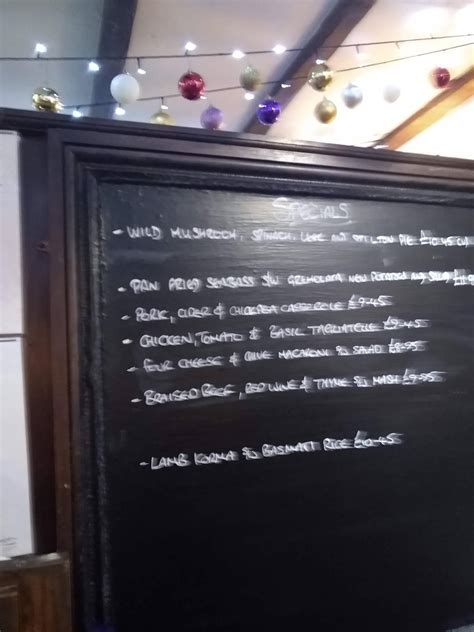 SPECIALS
- WILD MUSHROOM, SPINACH, LEEK AND STILTON PIE £10.45 (V)
- PAN FRIED SEABASS S/W GREMOLATA NEW POTATOES AND SALAD
- PORK, CIDER & CHICKPEA CASSEROLE £9.45
- CHICKEN, TOMATO & BASIL TAGLIATELLE £9.45
- FOUR CHEESE & OLIVE MACARONI S/W SALAD £8.95
- BRAISED BEEF, RED WINE & THYME S/W MASH £9.95
- LAMB KORMA S/W BASMATI RICE £10.45